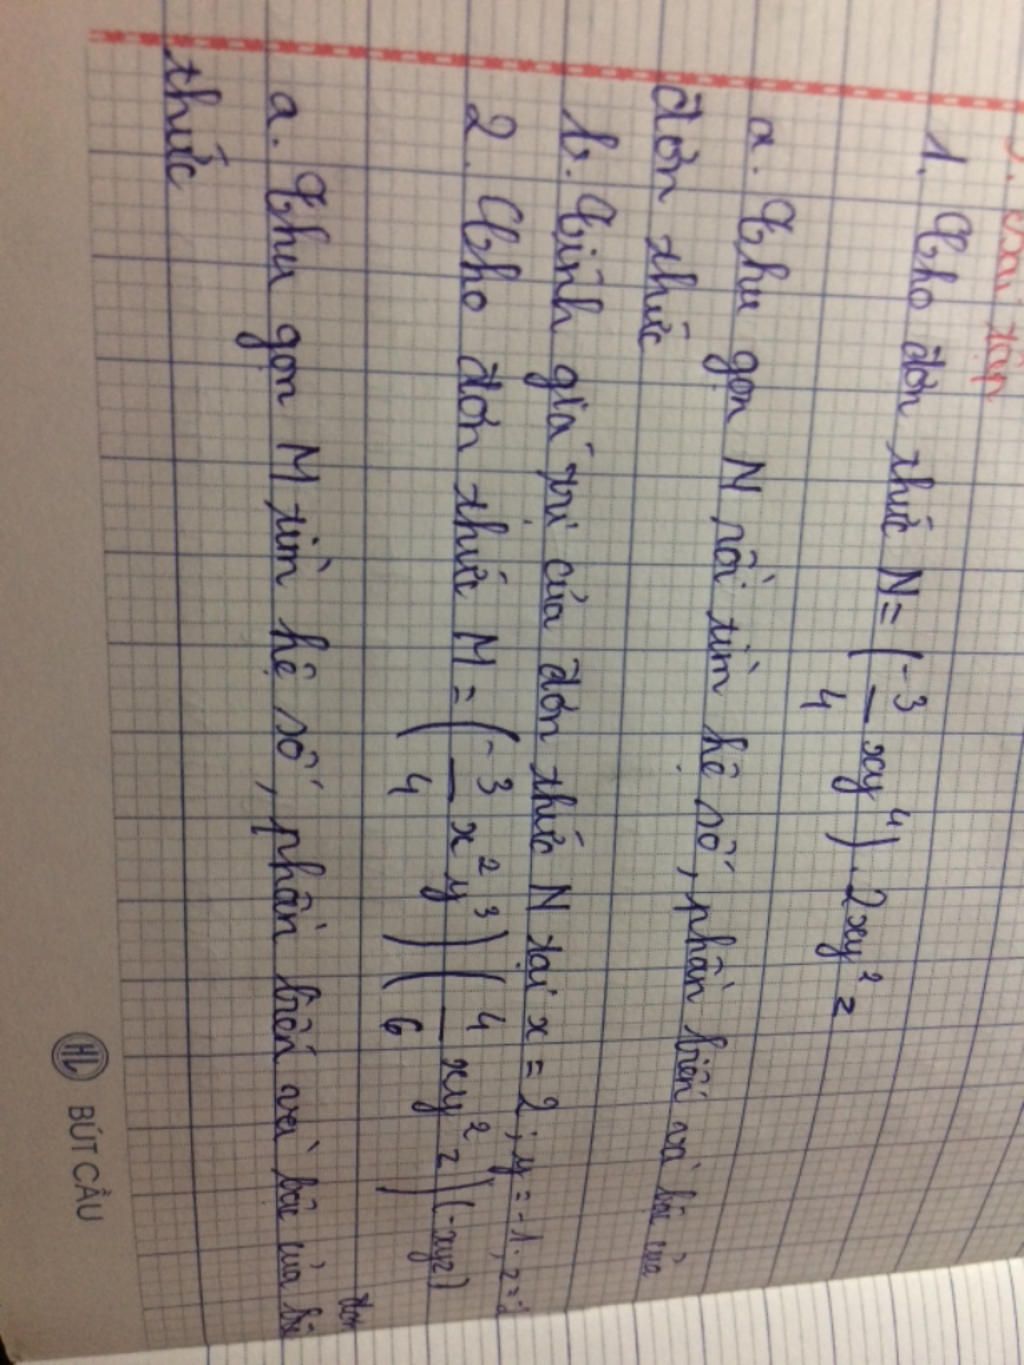 Bài tập
1. Cho đơn thức N = (-3/4 xy⁴) . 2xy² z
a. Thu gọn N rồi tìm hệ số, phần biến và bậc của
đơn thức
b. Tính giá trị của đơn thức N tại x = 2; y = -1; z =
2. Cho đơn thức M = (-3/4 x²y³)(4/6 xy²z)(-xyz)
a. Thu gọn M tìm hệ số, phần biến và bậc của
đơn
thức
HL BÚT CẦU